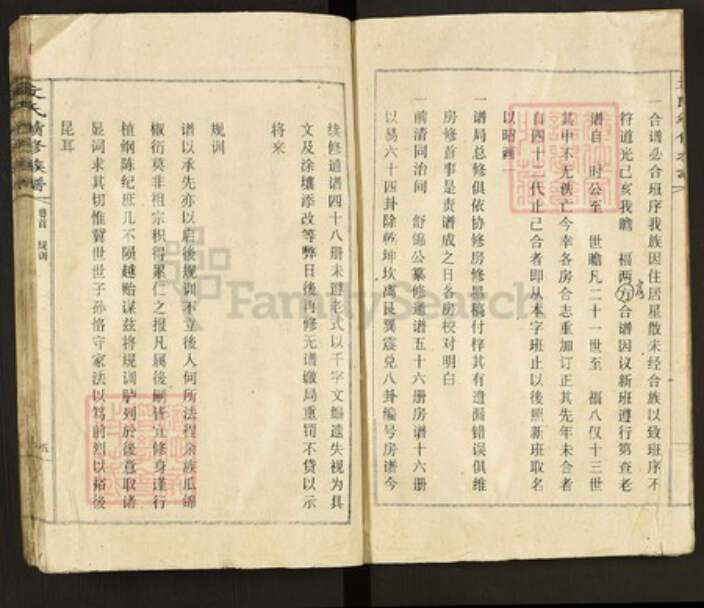 一合谱必合班序我族因住居星散未经合族以致班序不
符道光己亥我瞻 福两房合谱因议新班遵行第查老
谱自 时公至 世瞻凡二十一世至 福八仅十三世
其中不无佚亡今幸各房合志重加订正其先年未合者
自四十二代止已合者即从本字班止以後照新班取名
以昭画一
一谱局总修俱依协修房修墨稿付梓其有遗漏错误俱维
房修首事是责谱成之日各房校对明白
一前清同治间 舒锦公纂修通谱五十六册房谱十六册
以易六十四卦除乾坤坎离艮巽震兑八卦编号房谱今
续修通谱四十八册未遵老式以千字文编遗失视为具
文及涂壤添改等弊日後再修无谱缴局重罚不贷以示
将来
规训
谱以承先亦以启後规训不立後人何所法程余族瓜绵
椒衍莫非祖宗积得累仁之报凡属後嗣皆宜修身谨行
植纲陈纪庶几不陨越贻谋兹将规训胪列於後意取诸
显词求其切惟冀世世子孙恪守家法以笃前烈以裕後
昆耳
氏续修族谱
卷首 规训
FamilySearch